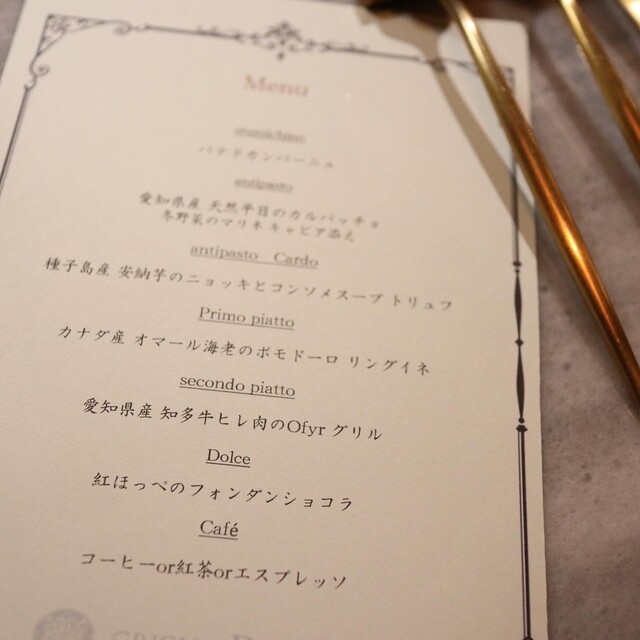 Menu
stuzzichino
パテドカンパーニュ
antipasto
愛知県産 天然平目のカルパッチョ
冬野菜のマリネ キャビア添え
antipasto Cardo
種子島産 安納芋のニョッキとコンソメスープ トリュフ
Primo piatto
カナダ産 オマール海老のポモドーロ リングイネ
secondo piatto
愛知県産 知多牛ヒレ肉のOfyr グリル
Dolce
紅ほっぺのフォンダンショコラ
Café
コーヒーor紅茶orエスプレッソ